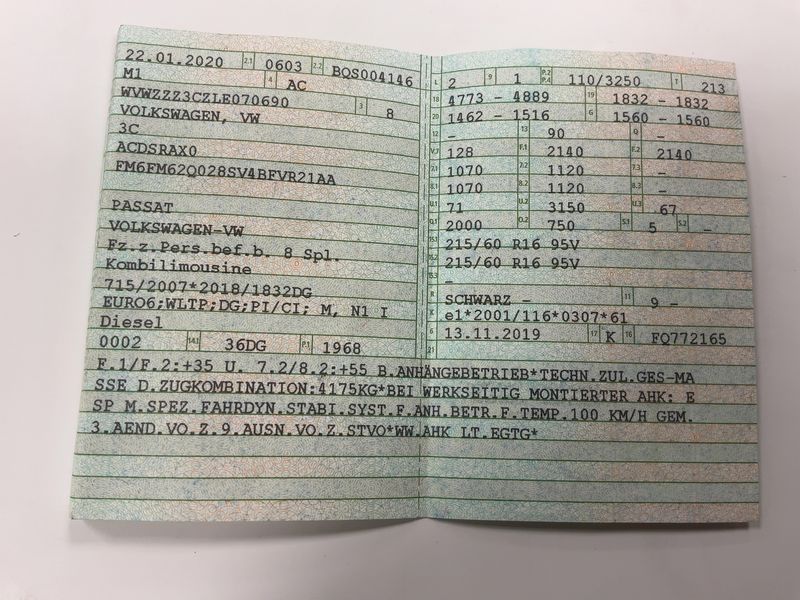 22.01.2020 2.1 0603 2.2 BQS004146
M1 4 AC
WVWZZZ3CZLE070690 3 8
VOLKSWAGEN, VW
3C
ACDSRAX0
FM6FM62Q028SV4BFVR21AA
PASSAT
VOLKSWAGEN-VW
Fz.z.Pers.bef.b. 8 Spl.
Kombilimousine
715/2007*2018/1832DG
EURO6;WLTP;DG;PI/CI; M, N1 I
Diesel
0002 14.1 36DG P.1 1968
L 2 9 1 P.2 P.4 110/3250 T 213
18 4773 - 4889 19 1832 - 1832
20 1462 - 1516 G 1560 - 1560
12 - 13 90 Q -
V.7 128 F.1 2140 F.2 2140
7.1 1070 7.2 1120 7.3 -
8.1 1070 8.2 1120 8.3 -
U.1 71 U.2 3150 U.3 67
O.1 2000 O.2 750 S.1 5 S.2 -
15.1 215/60 R16 95V
15.2 215/60 R16 95V
15.3 -
R SCHWARZ - 11 9 -
K e1*2001/116*0307*61
6 13.11.2019 17 K 16 FQ772165
21
F.1/F.2:+35 U. 7.2/8.2:+55 B.ANHÄNGEBETRIEB*TECHN.ZUL.GES-MA
SSE D.ZUGKOMBINATION:4175KG*BEI WERKSEITIG MONTIERTER AHK: E
SP M.SPEZ.FAHRDYN.STABI.SYST.F.ANH.BETR.F.TEMP.100 KM/H GEM.
3.AEND.VO.Z.9.AUSN.VO.Z.STVO*WW.AHK LT.EGTG*